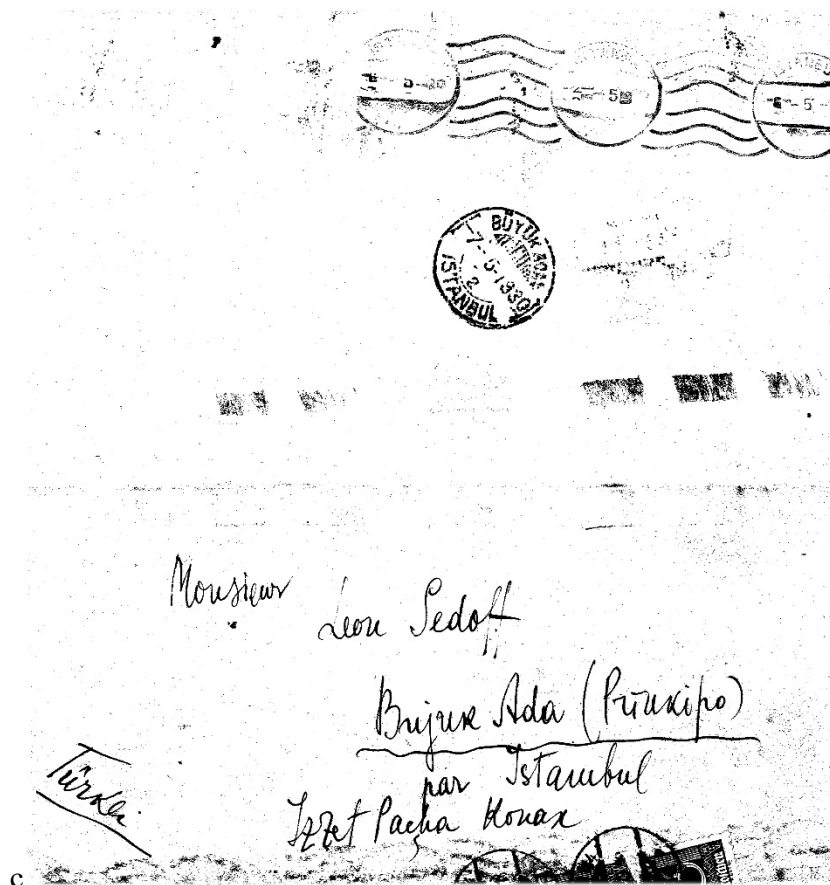 BÜYÜKADA
-7-5-1930
2
ISTANBUL
Monsieur
Leon Sedoff
Bujuk Ada (Prinkipo)
par Istambul
Türkei
Izzet Pacha Konak
c